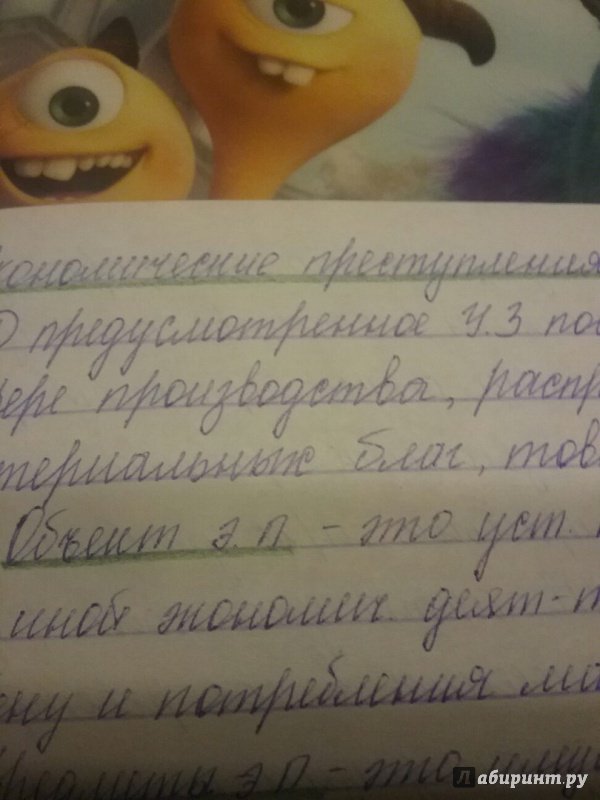 кономические преступления
предусмотренное У.З пос
фере производства, распр
териальных благ, тов
Объект э.п - это уст.
иной экономич. деят-т
ену и потребления ма
Предметы э.п - это
Лабиринт.ру